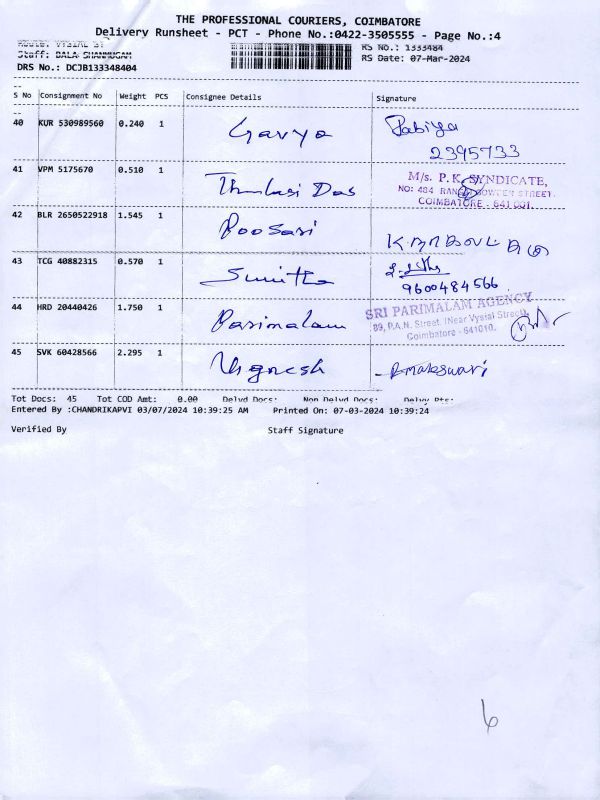 THE PROFESSIONAL COURIERS, COIMBATORE
Delivery Runsheet - PCT - Phone No.:0422-3505555 - Page No.:4
Route: VYSIAL ST
Staff: BALA SHANMUGAM
RS No.: 1333484
DRS No.: DCJB133348404
RS Date: 07-Mar-2024
S No Consignment No Weight PCS Consignee Details Signature
40 KUR 530989560 0.240 1 Gavya Pabiya
2395733
41 VPM 5175670 0.510 1 Thulasi Das M/s. P.K. SYNDICATE,
NO: 484 STREET.
COIMBATORE - 641 001.
42 BLR 2650522918 1.545 1 Poosari
43 TCG 40882315 0.570 1 Sunitha
9600484566
44 HRD 20440426 1.750 1 Parimalam SRI PARIMALAM AGENCY
89, P.A.N. Street, (Near Vysial Street)
Coimbatore - 641010.
45 SVK 60428566 2.295 1 Vignesh
Tot Docs: 45 Tot COD Amt: 0.00 Delvd Docs: Non Delvd Docs: Delvy Pts:
Entered By :CHANDRIKAPVI 03/07/2024 10:39:25 AM Printed On: 07-03-2024 10:39:24
Verified By Staff Signature
6